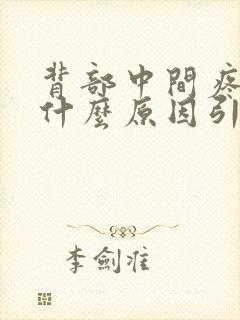 背部中間疼
什麼原因引
李劍淮